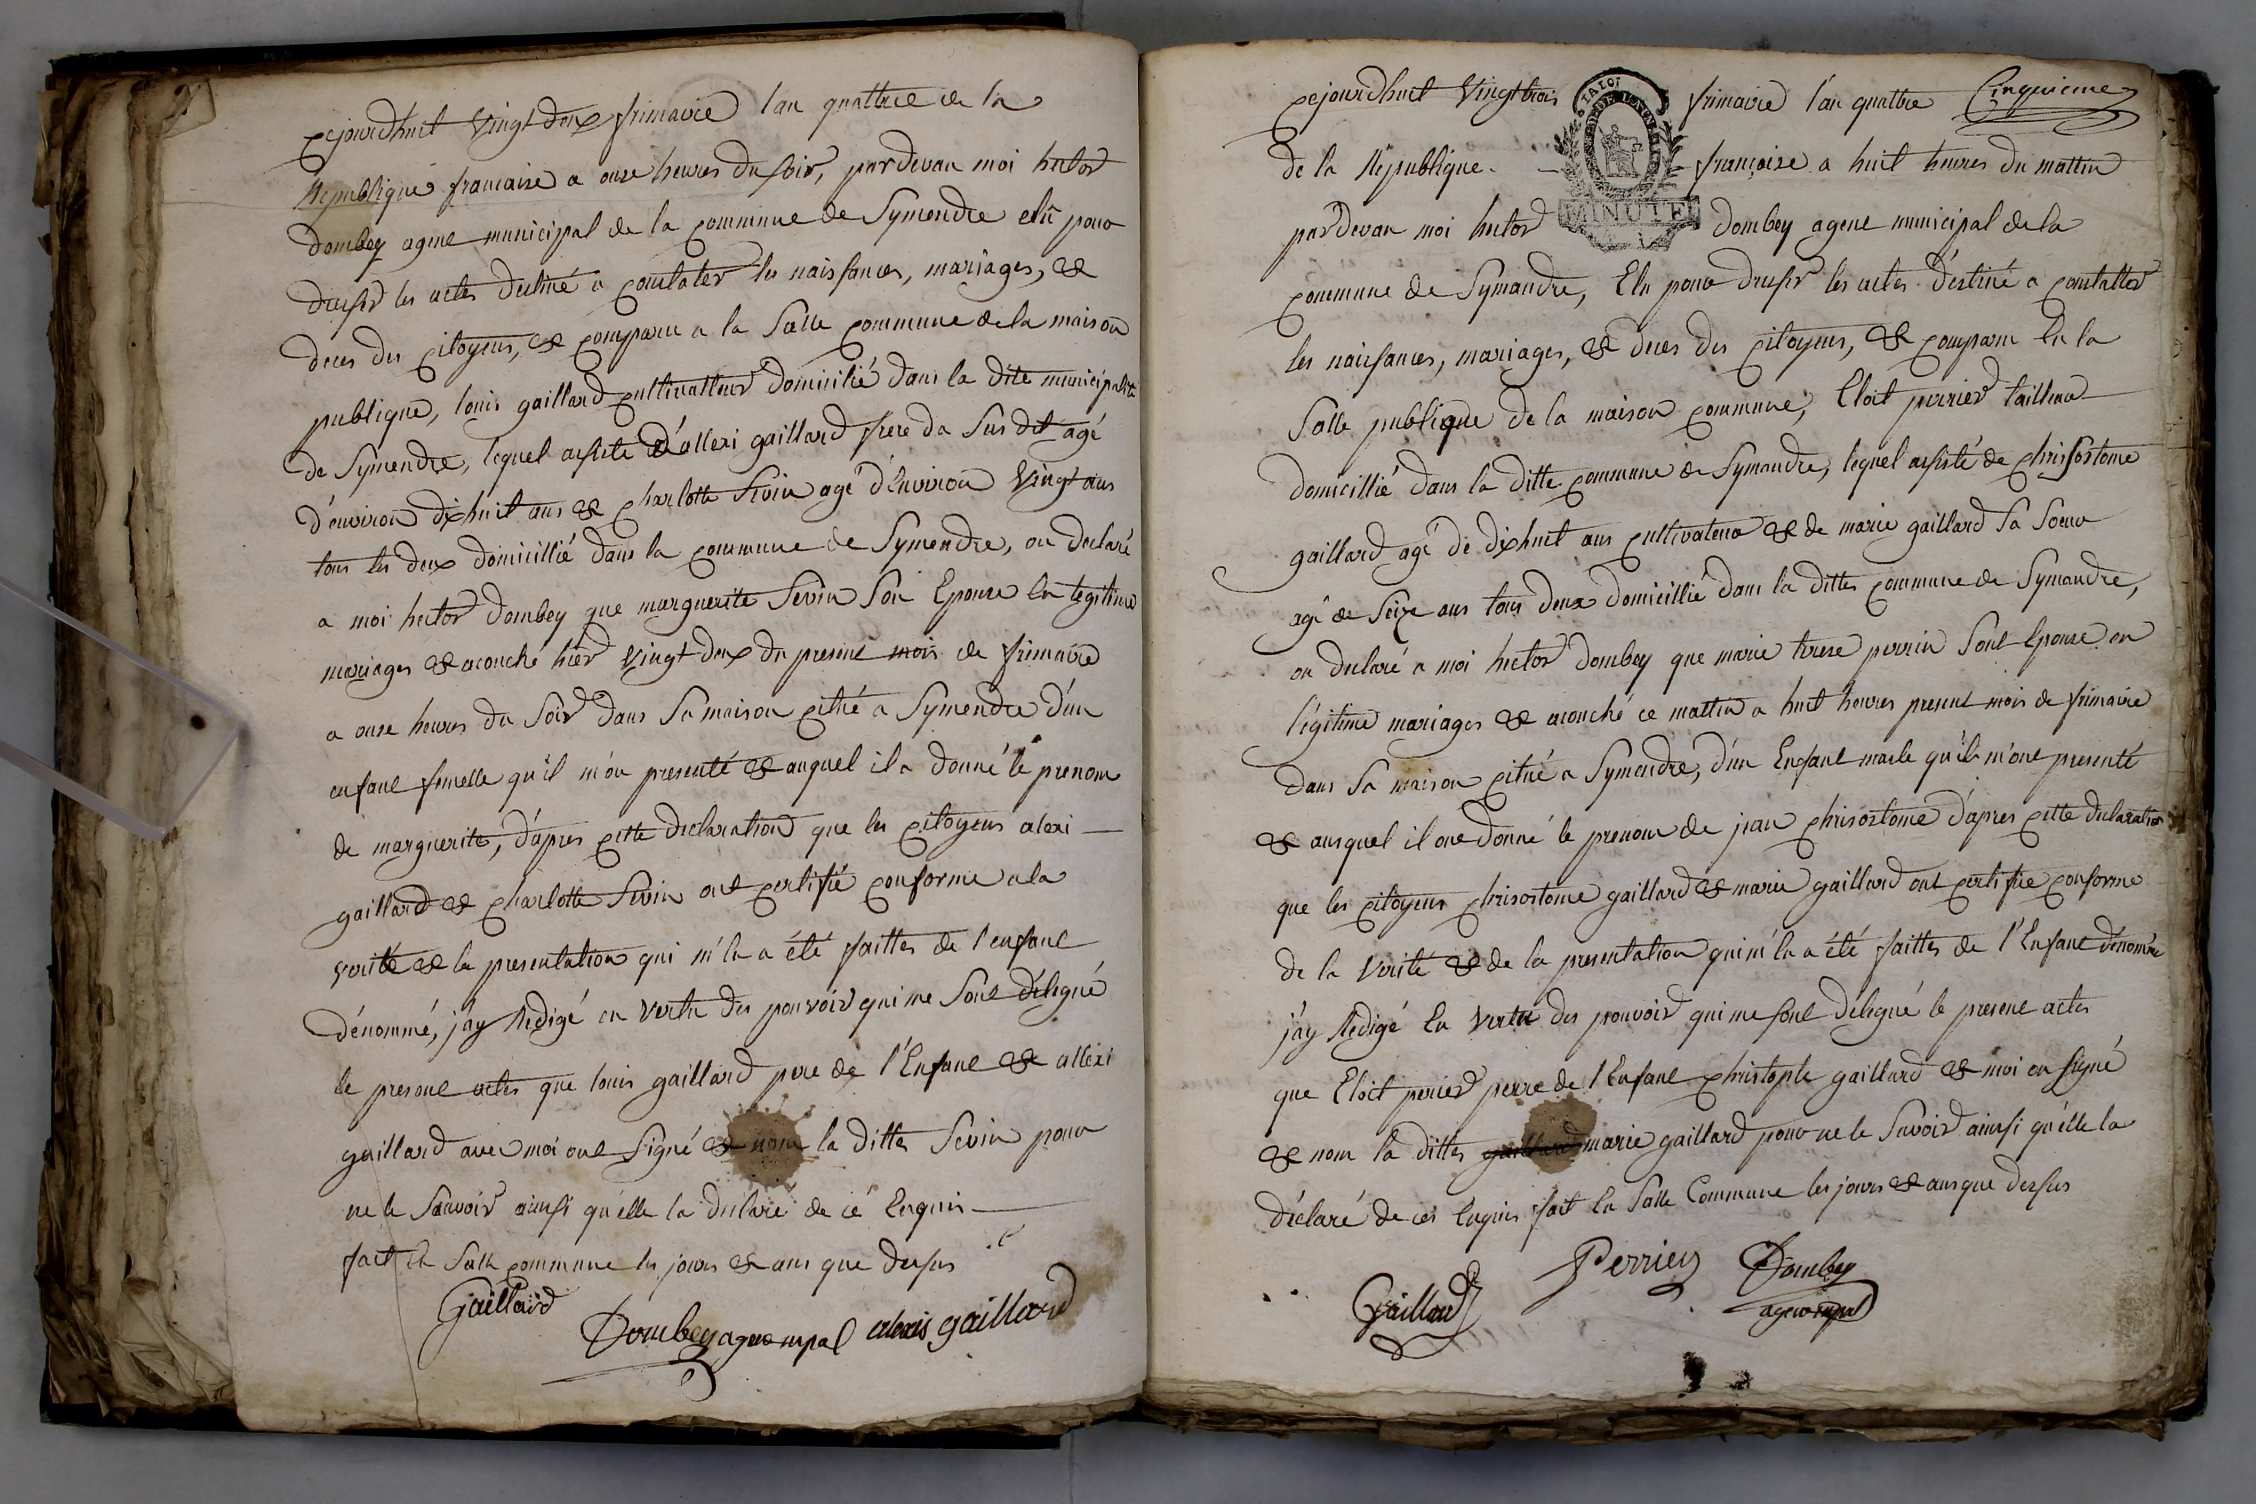 cejourdhuit vingt deux frimaire l'an quattrie de la
République francaise a onse heures du soir, pardevan moi hector
dombey agene municipal de la commune de Symendre elu pour
dressir les actes destiné a constater les naissances, mariages, &
deces des citoyens, & comparu a la Salle commune de la maison
publique, louis gaillard cultivatteur domicilié dans la dite municipalité
de Symendre, lequel assisté d'allexi gaillard frere du sus dit agé
d'environ dixhuit ans & charlotte Sivin agé d'Environ vingt ans
tous les deux domicillié dans la commune de Symendre, on declaré
a moi hector dombey que marguerite Sevin son Epouse En legitime
mariages & acouché hier vingt deux du presene mois de frimaire
a onse heures du soir dans sa maison citué a Symendre d'un
enfane femelle qu'il m'on presenté & auquel il a donné le prenom
de marguerite, d'apres cette declaration que les citoyens alexi
gaillard & charlotte Sivin ont certifié conforme a la
verité & la presentation qui m'en a été faittes de l'enfane
dénommé, j'ay Redigé en vertu des pouvoir qui me sont déleguè
le presene actes que louis gaillard pere de l'Enfane & allexi
gaillard avec moi one signé & nom la dittes Sevin pour
ne le sçavoir ainsi qu'elle la declaré de cé Enquis
fait En Salle commune les jours & ans que dessus
Gaillard
Dombey agene mpal alexis gaillard
cejourdhuit vingt trois frimaire l'an quattre Cinquieme
de la Republique françaire a huit heures du mattin
pardevan moi hector dombey agene municipal de la
MINUTE
commune de Symandre, Elu pour dressir les actes déstiné a constatter
les naissances, mariages, & deces des citoyens, & comparu En la
Salle publique de la maison commune, Eloit perrier tailleur
domicillié dans la ditte commune de Symandre, lequel assisté de chrisostome
gaillard agé de dixhuit ans cultivateur & de marie gaillard sa soeur
agé de seize ans tous deux domicillié dans la dittes commune de Symandre,
on declaré a moi hector dombey que marie terese perrin sont Epouse en
légitime mariages & acouché ce mattin a huit heures presene mois de frimaire
dans sa maison citué a Symendre, d'un Enfane masle qu'ils m'one presenté
& ausquel il one donné le prenom de jean chrisostome d'apres cette declaration
que les citoyens chrisostome gaillard & marie gaillard ont certifié conforme
de la verité & de la presentation qui m'en a été faittes de l'Enfane dénommé
j'ay Redigé En vertu des pouvoir qui me sone délegué le presene actes
que Eloit perier perre de l'Enfane christople gaillard & moi on signé
& nom la dittes gaillard marie gaillard pour ne le savoir ainsi qu'elle la
déclaré de ces Enquis fait En Salle Commune les jours & ans que dessus
Gaillard Perrier Dombey
agene mpal